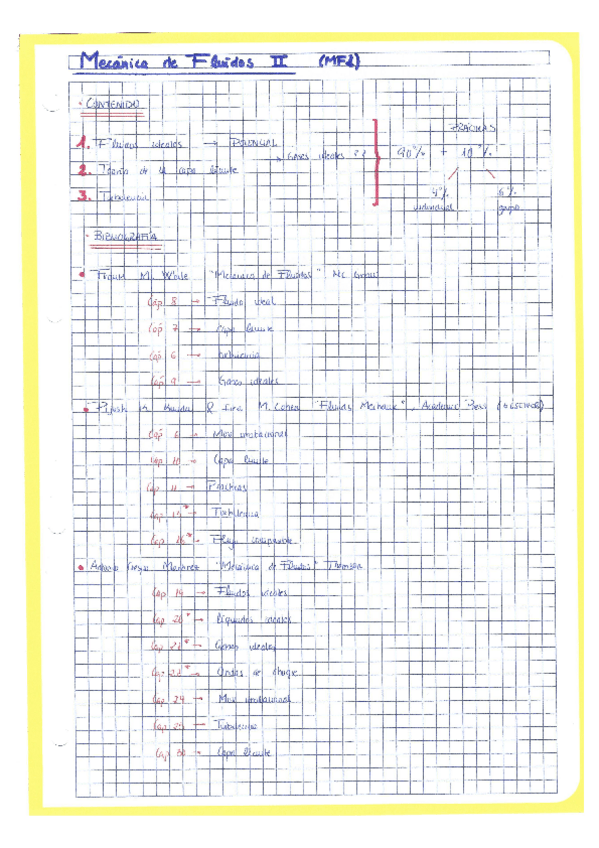 Mecánica de Fluidos II (MF2)
· CONTENIDO
PRÁCTICAS
1. Fluidos ideales → POTENCIAL
→ Gases ideales ?? 90% + 10%
2. Teoría de la capa límite
3. Turbulencia
4% 6%
individual grupo
· BIBLIOGRAFÍA
• Frank M. White "Mecánica de Fluidos" Mc Graw
Cap 8 → Fluido ideal
Cap 7 → Capa límite
Cap 6 → turbulencia
Cap 9 → Gases ideales
• Pijush K. Kundu & Ira M. Cohen "Fluids Mechanics", Academic Press
Cap 6 → Mov irrotacional
Cap 10 → Capa límite
Cap 11 →
Cap 13* → Turbulencia
Cap 16* → Flujo compresible
• Antonio Crespo Martínez "Mecánica de Fluidos" Thomson
Cap 19 → Fluidos ideales
Cap 20* → líquidos ideales
Cap → Gases ideales
Cap → Ondas de choque
Cap 24 → Mov irrotacional
Cap → Turbulencia
Cap 30 → Capa límite